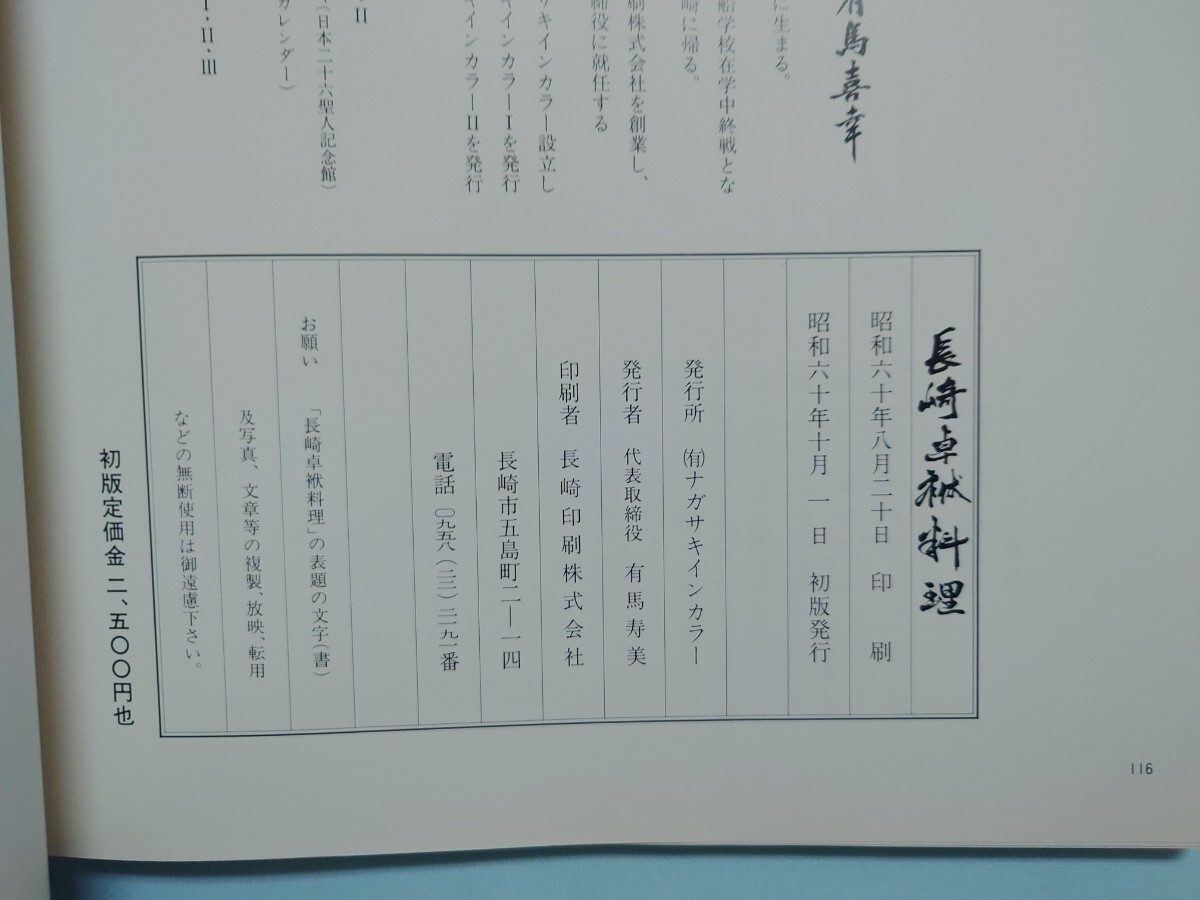 有馬喜幸
に生まる。
船学校在学中終戦とな
崎に帰る。
刷株式会社を創業し、
締役に就任する
サキインカラー設立し
キインカラーIを発行
キインカラーIIを発行
II
(日本二十六聖人記念館)
カレンダー)
I・II・III
長崎卓袱料理
昭和六十年八月二十日 印 刷
昭和六十年十月 一 日 初版発行
発行所 ㈲ナガサキインカラー
発行者 代表取締役 有馬寿美
印刷者 長崎印刷株式会社
長崎市五島町二―一四
電話 〇九五八(二二)二一九一番
お願い 「長崎卓袱料理」の表題の文字(書)
及写真、文章等の複製、放映、転用
などの無断使用は御遠慮下さい。
初版定価金 二、五〇〇円也
116